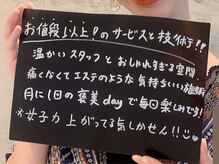 お値段以上♪のサービスと技術す!!
温かいスタッフとおしゃれすぎる空間
痛くなくてエステのような気持ちいい施術
月に1回の褒美dayで毎回楽しみです!
※女子力上がってる気しかせん!!